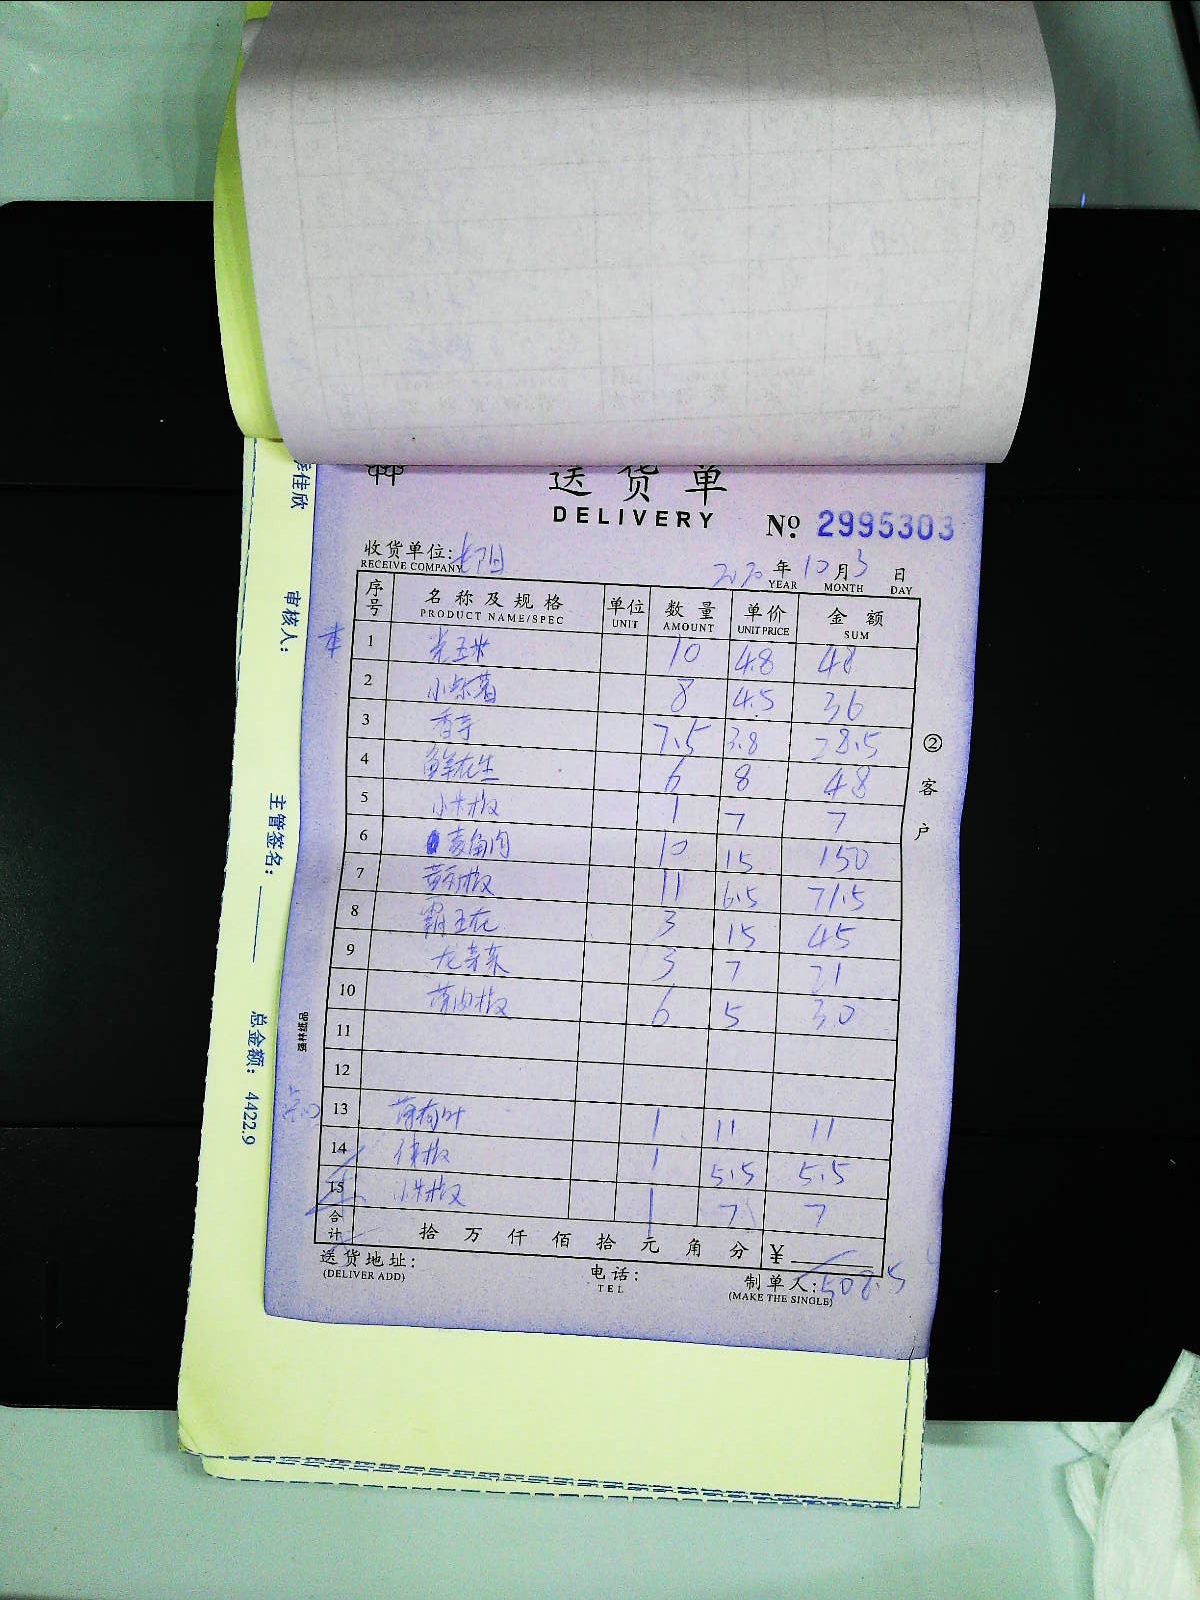 送货单
DELIVERY
№ 2995303
收货单位:
RECEIVE COMPANY
2020 年 10 月 3 日
YEAR MONTH DAY
序号 名称及规格 单位 数量 单价 金额
PRODUCT NAME/SPEC UNIT AMOUNT UNIT PRICE SUM
1 光玉米 10 4.8 48
2 小紫薯 8 4.5 36
3 香芋 7.5 3.8 28.5
4 鲜花生 6 8 48
5 小米椒 1 7 7
6 菱角肉 10 15 150
7 黄剑椒 11 6.5 71.5
8 霸王花 3 15 45
9 3 7 21
10 薄肉椒 6 5 30
11
12
13 薄荷叶 1 11 11
14 1 5.5 5.5
15 小米椒 1 7 7
合计 拾 万 仟 佰 拾 元 角 分 ¥
508.5
送货地址:
(DELIVER ADD)
电话:
TEL
制单人:
(MAKE THE SINGLE)
②客户
强林纸品
佳欣
审核人:
主管签名:
总金额: 4422.9